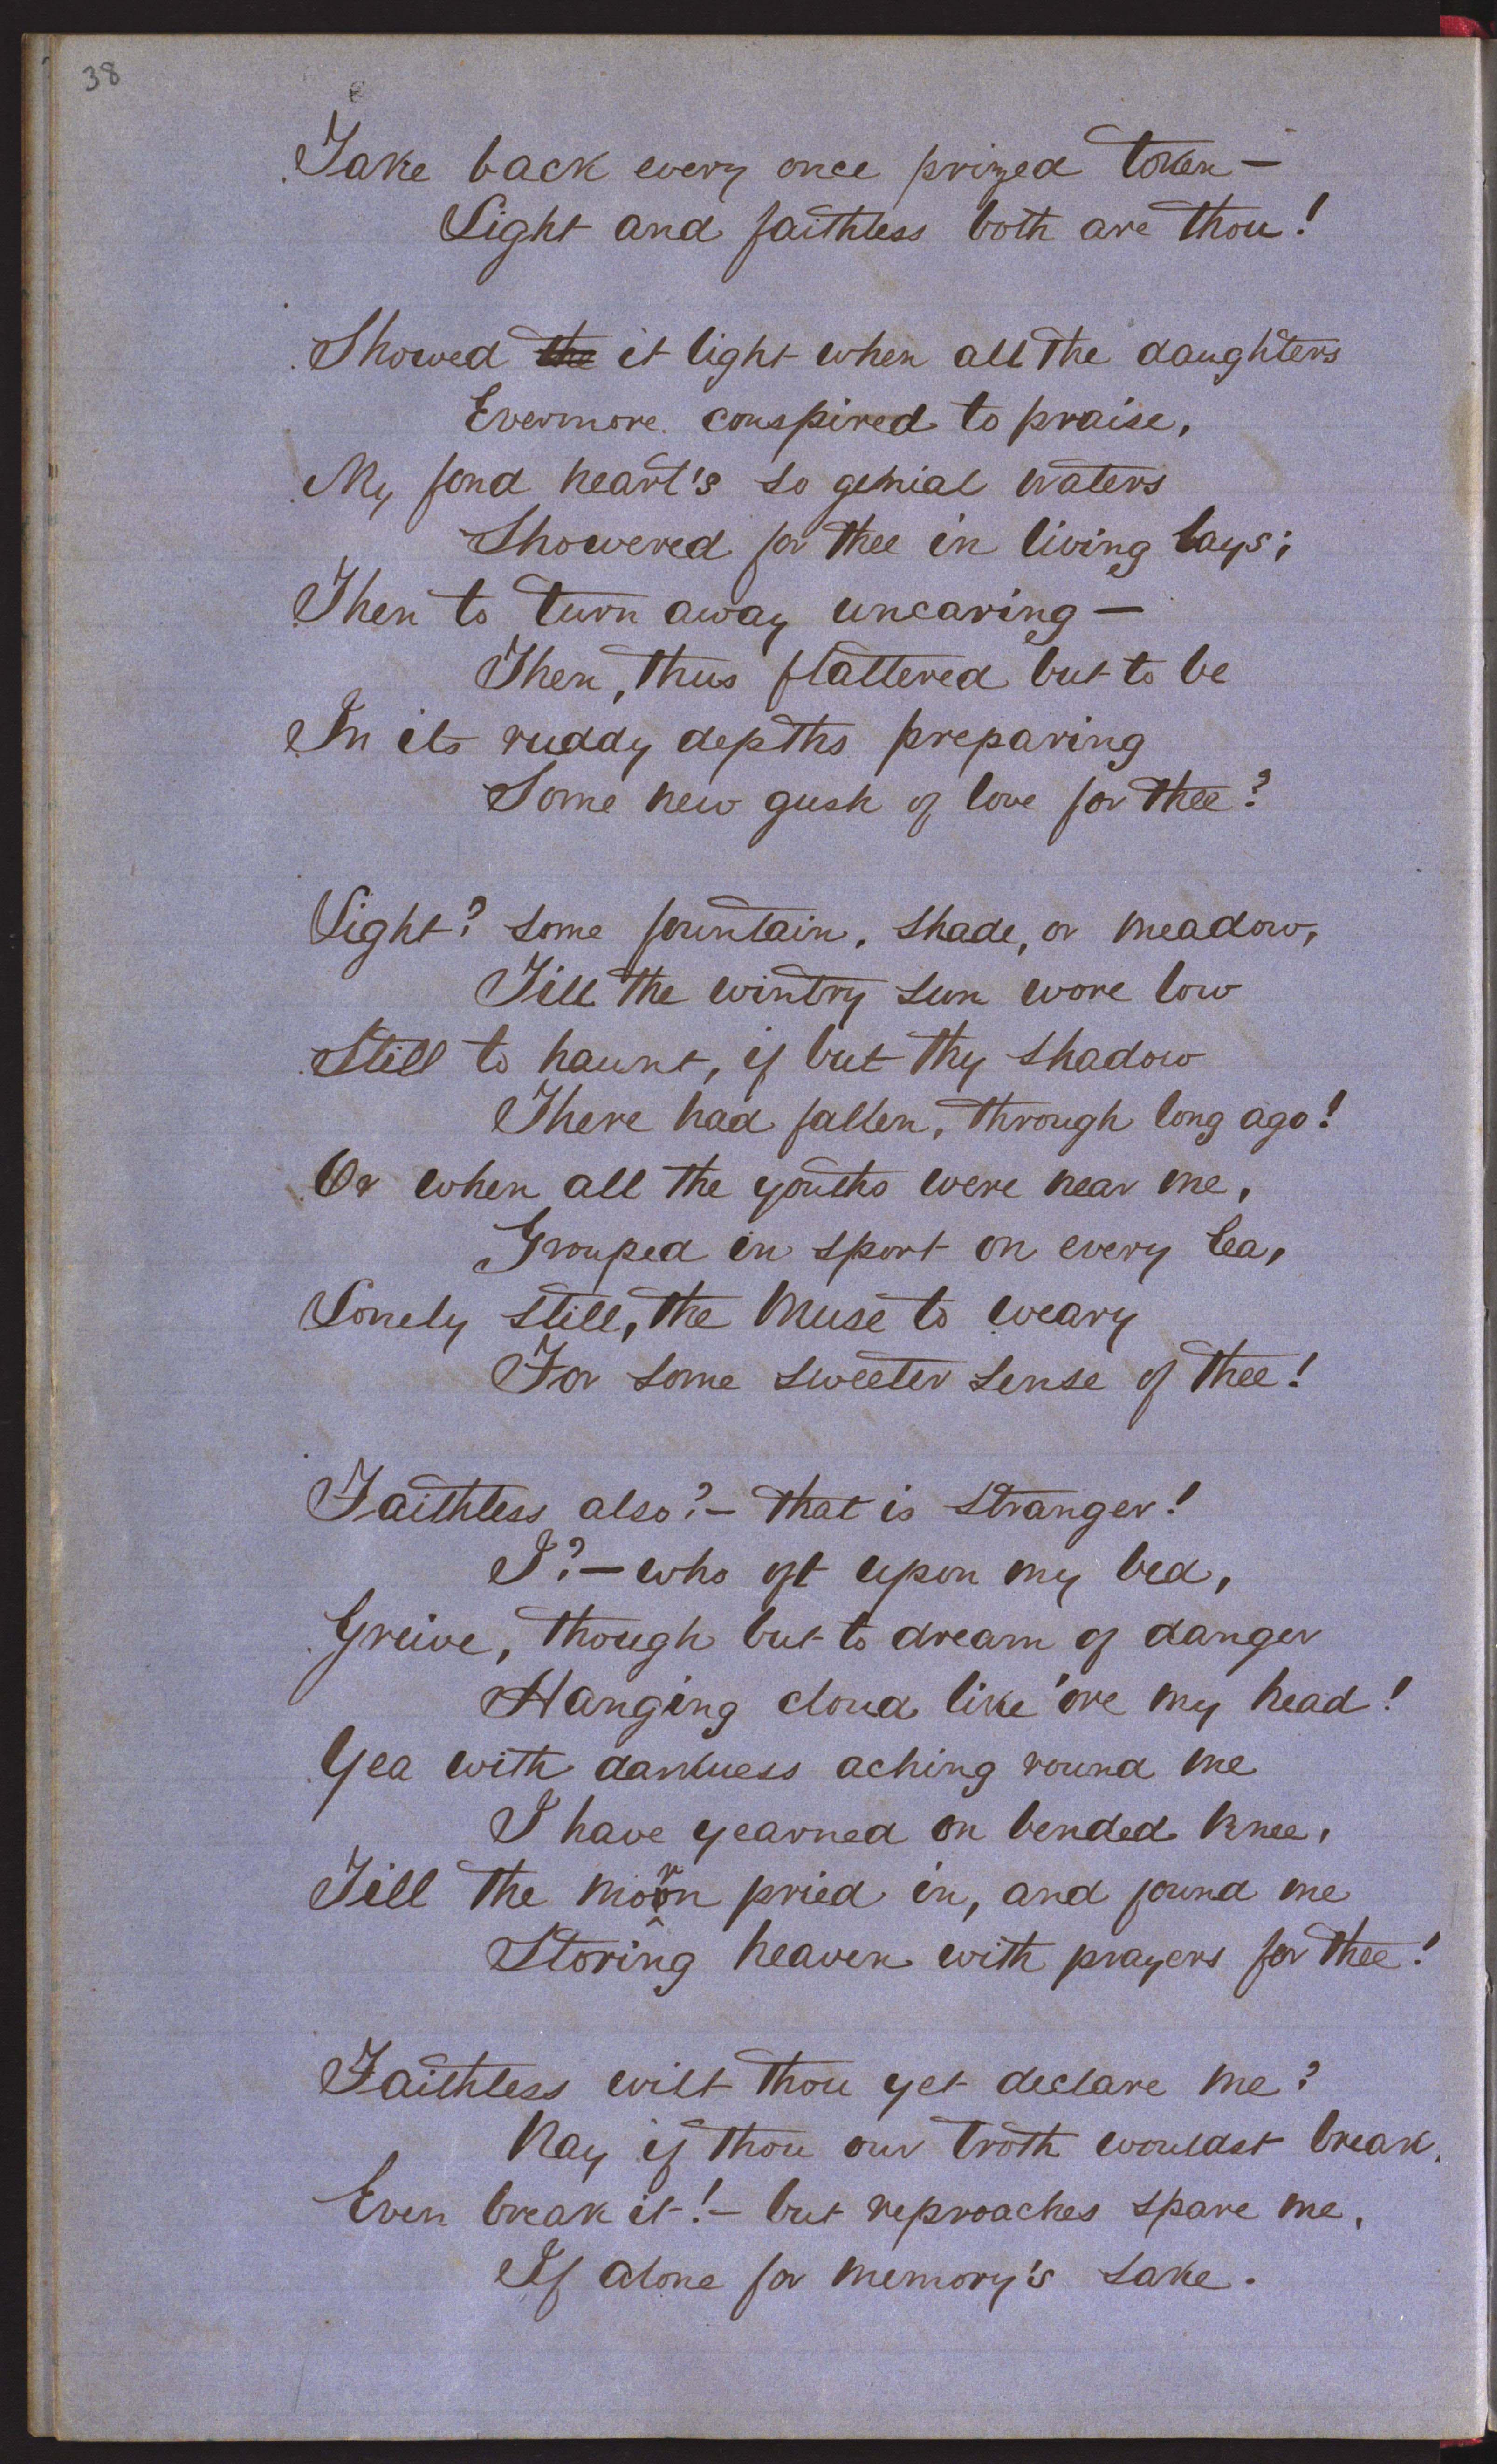 38
Take back every once prized token —
Light and faithless both are thou!
Showed the it light when all the daughters
Evermore conspired to praise,
My fond heart's so genial waters
Showered for thee in living lays;
Then to turn away uncaring —
Then, thus flattered but to be
In its ruddy depths preparing
Some new gush of love for thee?
Light? some fountain, shade, or meadow,
Till the wintry sun wore low
Still to haunt, if but thy shadow
There had fallen, through long ago!
Or when all the youths were near me,
Grouped in sport on every lea,
Lonely still, the Muse to weary
For some sweeter sense of thee!
Faithless also? — that is stranger!
I? — who oft upon my bed,
Greive, though but to dream of danger
Hanging cloud like 'ore my head!
Yea with darkness aching round me
I have yearned on bended knee,
Till the morn pried in, and found me
Storing heaven with prayers for thee!
Faithless wilt thou yet declare me?
Nay if thou our troth wouldst break,
Even break it! — but reproaches spare me,
If alone for memory's sake.